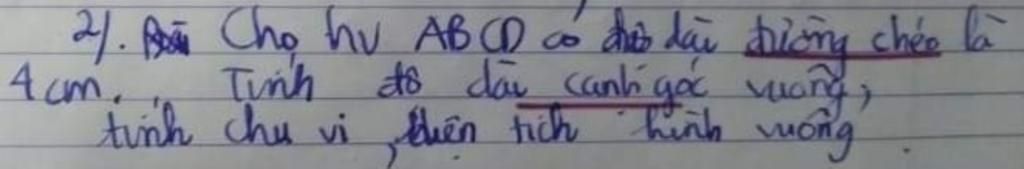 2). Cho hv ABCD có dài đường chéo là
4 cm. Tính độ dài cạnh góc vuông,
tính chu vi, diện tích hình vuông.